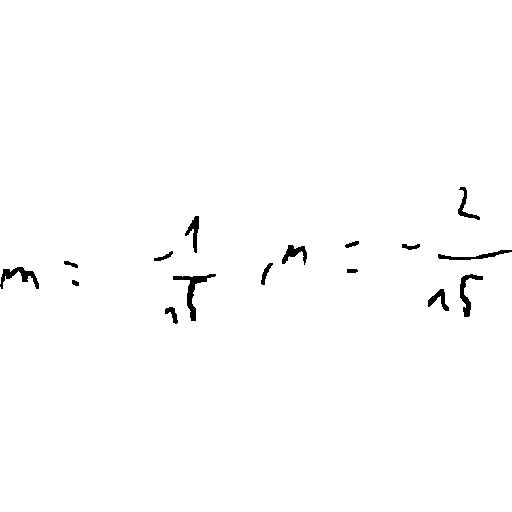 m = -\frac{1}{15}, n = -\frac{2}{15}